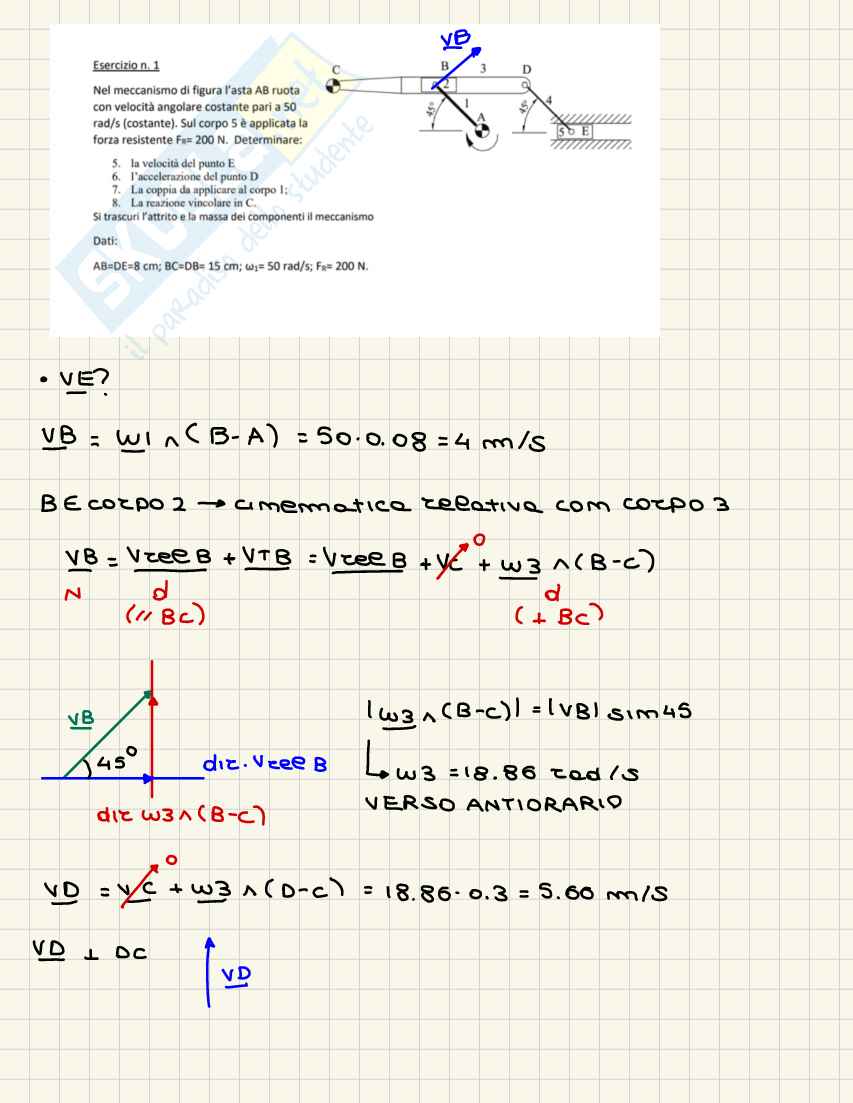 Esercizio n. 1
Nel meccanismo di figura l'asta AB ruota
con velocità angolare costante pari a 50
rad/s (costante). Sul corpo 5 è applicata la
forza resistente FR= 200 N. Determinare:
5. la velocità del punto E
6. l'accelerazione del punto D
7. La coppia da applicare al corpo 1;
8. La reazione vincolare in C.
Si trascuri l'attrito e la massa dei componenti il meccanismo
Dati:
AB=DE=8 cm; BC=DB= 15 cm; ω1= 50 rad/s; FR= 200 N.
VB
C B 3 D
2
1 4
45° A 45°
5 E
il paradiso dello studente
• VE?
VB = ω1 ∧ (B-A) = 50·0.08 = 4 m/s
B ∈ corpo 2 → cinematica relativa con corpo 3
VB = Vrel B + VTB = Vrel B + VC + ω3 ∧ (B-C)
0
N d d
(// BC) (⊥ BC)
VB
45°
dir. Vrel B
dir ω3 ∧ (B-C)
|ω3 ∧ (B-C)| = |VB| sin 45
↳ ω3 = 18.86 rad/s
VERSO ANTIORARIO
VD = VC + ω3 ∧ (D-C) = 18.86·0.3 = 5.66 m/s
0
VD ⊥ DC
VD